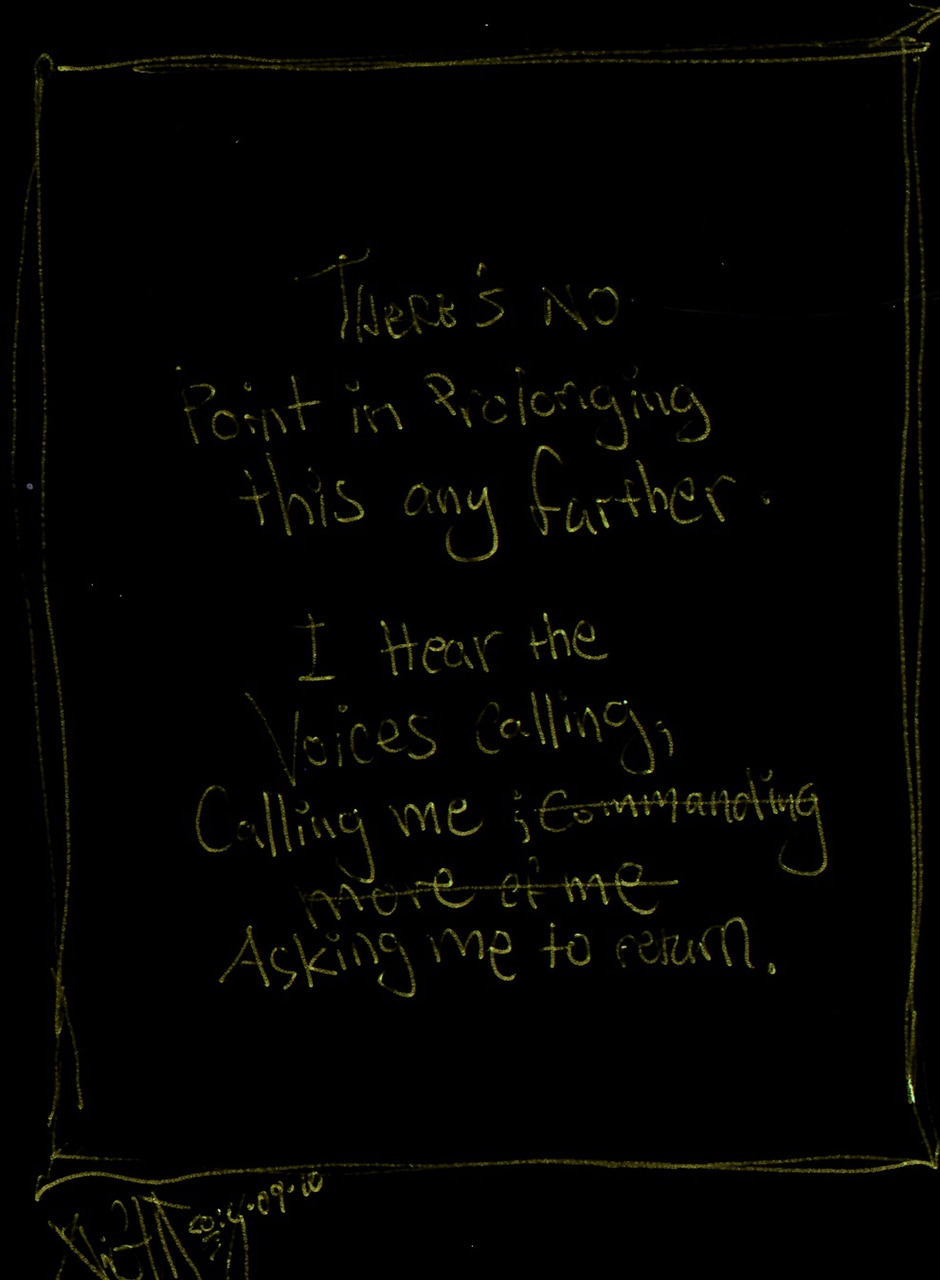 THERE'S NO
Point in Prolonging
this any farther.
I Hear the
Voices calling,
Calling me ; Commanding
more of me
Asking me to return.
2014-09-10